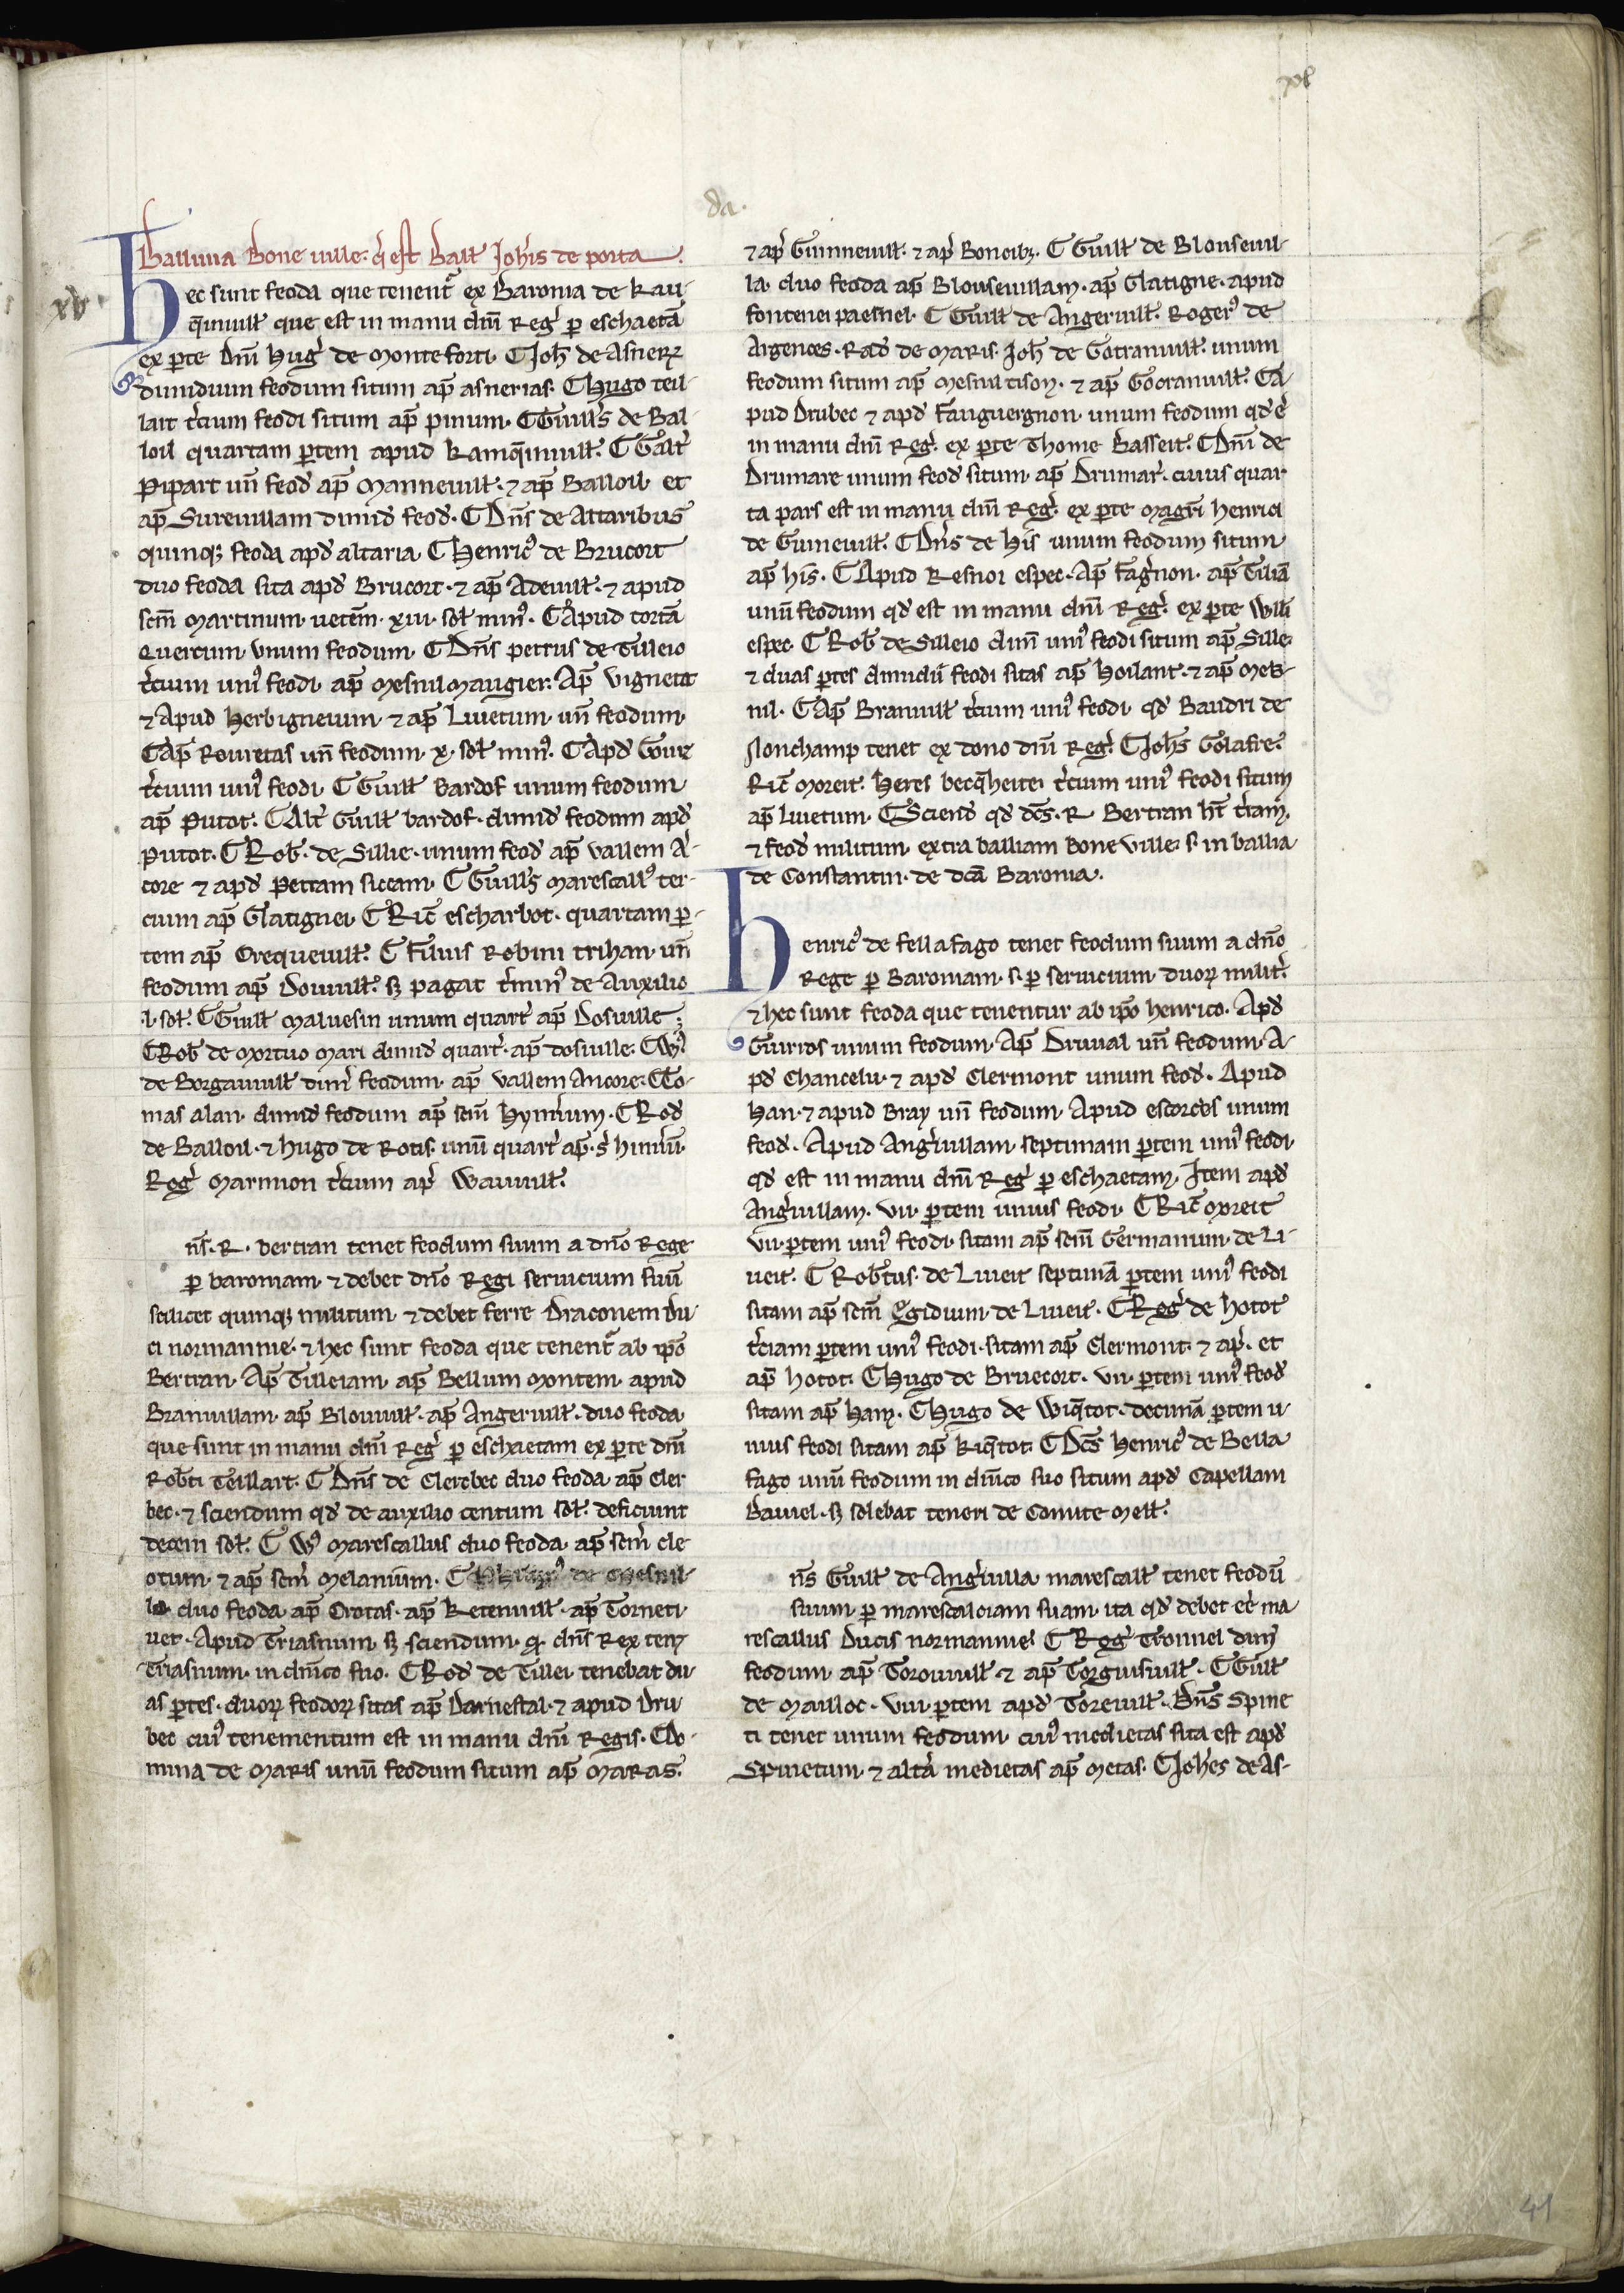 xl
da.
xv.
Balliua Bone uille. q̄ est Ball̄ Joh̄is de porta.
Hec sunt feoda que tenent᷑ ex Baronia de kau-
q̄inuill̄ que est in manu dn̄i Reg̕ ꝑ eschaetā
ex ꝑte dn̄i hug̕ de monte forti. ⸿ Joh̄ de Asnerꝝ
dimidium feodum situm ap̄ asnerias. ⸿ hugo teil-
lart t̄cium feodi situm ap̄ pinum. ⸿ Guill̄s de Bal-
loil quartam ꝑtem apud kamq̄inuill̄. ⸿ Galt̕
Pipart un̄ feod̄ ap̄ Manneuill̄. ⁊ ap̄ Balloil et
ap̄ Sureuillam dimid̄ feod̄. ⸿ Dn̄s de Altaribus
quinqꝫ feoda apd̄ altaria ⸿ Henric̕ de Brucort
duo feoda sita apd̄ Brucort. ⁊ ap̄ Adeuill̄. ⁊ apud
sc̄m Martinum uetēm. xiii. sol̄ min᷒. ⸿ Apud tortā
quercum unum feodum. ⸿ Dn̄s petrus de Tilleio
t̄cium uni᷒ feodi ap̄ Mesnil Maugier. Ap̄ vignetit
⁊ Apud herbigneium ⁊ ap̄ Liuetum un̄ feodum.
⸿ Ap̄ Rouretas un̄ feodum. x. sol̄ min᷒. ⸿ Apd̄ Gouiz
t̄cium uni᷒ feodi. ⸿ Guill̄ bardof unum feodum
ap̄ Putot. ⸿ Alt̄ Guill̄ bardof. dimid̄ feodum apd̄
Putot. ⸿ Rob̄. de Sillie. unum feod̄ ap̄ vallem A-
core ⁊ apd̄ Petram siccam. ⸿ Guill̄s marescall᷒ ter-
cium ap̄ Glatignei. ⸿ Ric̄ escharbot. quartam ꝑ-
tem ap̄ Crequeuill̄. ⸿ Filius Robini trihan. un̄
feodum ap̄ Douuill̄. sꝫ pagat t̄min᷒ de Auxilio
.l. sol̄. ⸿ Guill̄ maluesin unum quart̄ ap̄ Dosuille.
⸿ Rob̄ de Mortuo Mari dimid̄ quart̄. ap̄ dosuille. ⸿ W᷒
de Borgauuill̄ dim̄ feodum ap̄ vallem Ancore. ⸿ To-
mas alan. dimid̄ feodum ap̄ sc̄m hymrium. ⸿ Rod̄
de Balloil. ⁊ hugo de Rotis. unū quart̄ ap̄. s̄ himriū.
Reg̕ Marmion t̄cium ap̄ Wauuill̄.
n̄s. R. bertran tenet feodum suum a dn̄o Rege
ꝑ baroniam ⁊ debet dn̄o Regi seruicium suū
scilicet quinqꝫ militum ⁊ debet ferre Draconem Du-
ci normannie. ⁊ hec sunt feoda que tenent᷑ ab ip̄o
Bertran. Ap̄ Tilleiam. ap̄ Bellum Montem. apud
Branuillam. ap̄ Blouuill̄. ap̄ Angeruill̄. duo feoda
que sunt in manu dn̄i Reg̕ ꝑ eschaetam ex ꝑte dn̄i
Rob̄ti Teillart. ⸿ Dn̄s de Clerebec duo feoda ap̄ Cler
bec. ⁊ sciendum qd̄ de auxilio centum sol̄. deficiunt
decem sol̄. ⸿ W᷒ Marescallus duo feoda. ap̄ sc̄m cle
otum. ⁊ ap̄ sc̄m Melanium. ⸿ de Mesnil-
la duo feoda ap̄ Crotas. ap̄ ketenuill̄. ap̄ Torneti
uet. Apud Triasnum. sꝫ sciendum. qd̄ dn̄s Rex tenꝫ
Triasnum. in dn̄ico suo. ⸿ Rod̄ de Tillei tenebat du-
as ꝑtes. duoꝝ feodoꝝ sitas ap̄ Darnestal. ⁊ apud Dru-
bec cui᷒ tenementum est in manu dn̄i Regis. ⸿ Do-
mina de Maris unū feodum situm ap̄ Maras.
⁊ ap̄ Guinneuill̄. ⁊ ap̄ Boneibꝫ. ⸿ Guill̄ de Blouseuil-
la. duo feoda ap̄ Blouseuillam. ap̄ Glatigne. apud
fontenei paesnel. ⸿ Guill̄ de Angeruill̄. Roger᷒ de
Argences. Rad̄ de Maris. Joh̄ de Gotranuill̄. unum
feodum situm ap̄ Mesnil tison. ⁊ ap̄ Gotranuill̄. ⸿ A-
pud Drubec ⁊ apd̄ Fauguergnon. unum feodum qd̄ ē
in manu dn̄i Reg̕. ex ꝑte Thome Basseit. ⸿ Dn̄i de
Drumare unum feod̄ situm. ap̄ Drumar̄. cuius quar
ta pars est in manu dn̄i Reg̕. ex ꝑte maḡri Henrici
de Guineuill̄. ⸿ Dn̄s de his unum feodum situm
ap̄ his. ⸿ Apud Resnoi espec. Ap̄ Fagnon. ap̄ Tiliā
unū feodum qd̄ est in manu dn̄i Reg̕. ex ꝑte Will̄i
espec. ⸿ Rob̄ de Silleio dim̄ uni᷒ feodi situm ap̄ Sille.
⁊ duas ꝑtes dimidii feodi sitas ap̄ hoilant. ⁊ ap̄ Mes-
nil. ⸿ Ap̄ Branuill̄ t̄cium uni᷒ feodi. qd̄ Baudri de
Lonchamp tenet ex dono dn̄i Reg̕. ⸿ Joh̄s Golafre.
Ric̄ Moreit. Heres becq̄heite. t̄cium uni᷒ feodi situm
ap̄ Liuetum. ⸿ Sciend̄ qd̄ dc̄s. R Bertran ht̄ t̄ciam.
⁊ feod̄ militum extra balliam Bone ville. s. in ballia
de Constantin. de dc̄a Baronia.
Henric᷒ de fella fago tenet feodum suum a dn̄o
Rege ꝑ Baroniam. s. ꝑ seruicium. duoꝝ milit̄.
⁊ hec sunt feoda que tenentur ab ip̄o henrico. Apd̄
Guirros unum feodum. Ap̄ Druual un̄ feodum. A-
pd̄ Chancelu. ⁊ apd̄ Clermont unum feod̄. Apud
Han. ⁊ apud Bray un̄ feodum. Apud escorces unum
feod̄. Apud Ang̕uillam. septimam ꝑtem uni᷒ feodi.
qd̄ est in manu dn̄i Reg̕ ꝑ eschaetam. Item apd̄
Ang̕uillam. vii. ꝑtem unius feodi. ⸿ Ric̄ Moreit
vii. ꝑtem uni᷒ feodi. sitam ap̄ sc̄m Germanum. de Li-
ueit. ⸿ Rob̄tus. de Liueit septimā ꝑtem uni᷒ feodi
sitam ap̄ sc̄m Egidium. de Liueit. ⸿ Reg̕ de hotot
t̄ciam ꝑtem uni᷒ feodi. sitam ap̄ Clermont. ⁊ ap̄. et
ap̄ hotot. ⸿ hugo de Bruecort. vii. ꝑtem uni᷒ feod̄
sitam ap̄ ham. ⸿ hugo de Wiq̄tot. decimā ꝑtem u-
nius feodi sitam ap̄ kiq̄tot. ⸿ Dc̄s Henric᷒ de Bella
fago unū feodum in dn̄ico suo situm apd̄ Capellam
Bauuel. sꝫ solebat teneri de Comite Mell̄.
n̄s Guill̄ de Ang̕uilla. marescall̄ tenet feodū
suum. ꝑ marescalciam suam. ita qd̄ debet eē ma
rescallus Ducis normannie. ⸿ Reg̕ Tronnel dim̄
feodum. ap̄ Torouuill̄ ⁊ ap̄ Torguisuill̄. ⸿ Guill̄
de Mailloc. viii. ꝑtem apd̄ Toreuill̄. Dn̄s Spine
ti tenet unum feodum. cui᷒ medietas sita est apd̄
Spinetum. ⁊ alt̄a medietas ap̄ Metas. ⸿ Joh̄es de As-
41